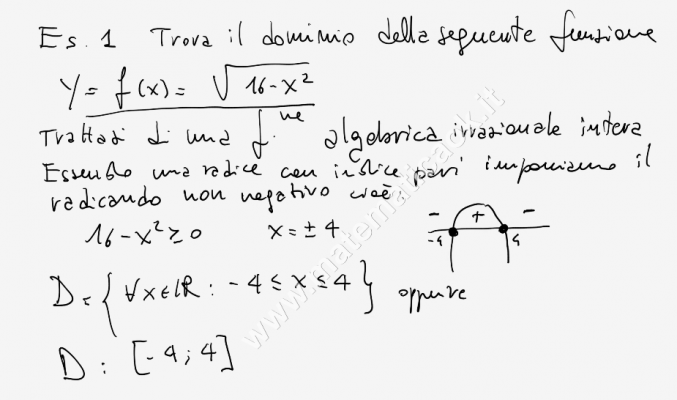 Es. 1 Trova il dominio della seguente funzione
Y = f(x) = √16-x²
Trattasi di una f.ne algebrica irrazionale intera
Essendo una radice con indice pari imponiamo il
radicando non negativo cioè:
16-x² ≥ 0 x = ± 4 - + -
-4 4
D = { ∀x∈ℝ : -4 ≤ x ≤ 4 } oppure
D : [-4 ; 4]
www.matematicaok.it